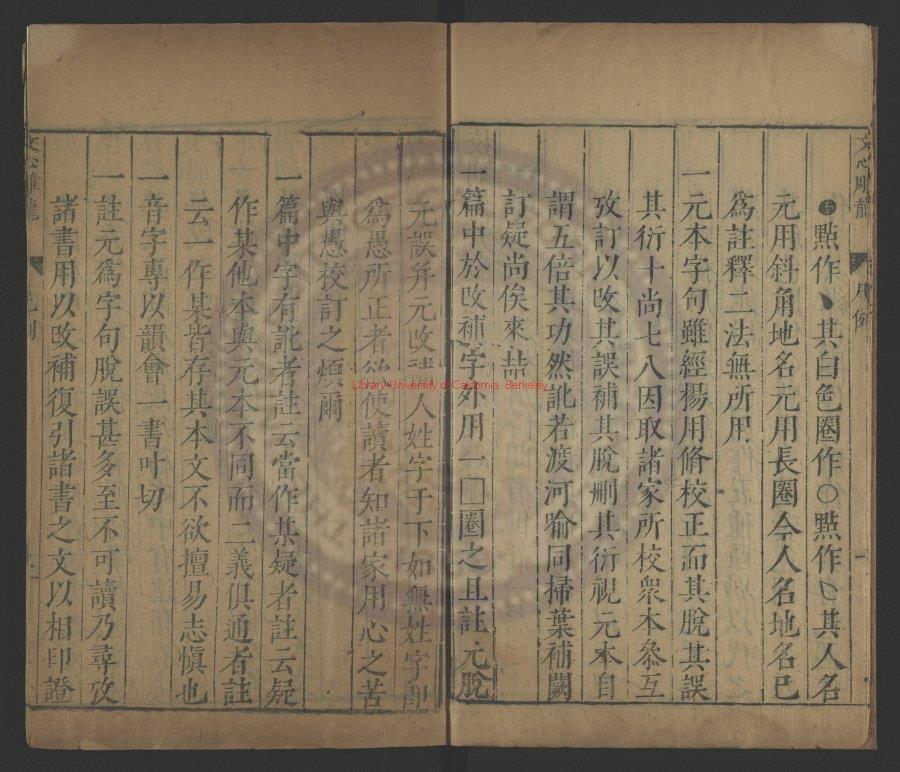 文心雕龍 凡例 一
點作丶其白色圈作○點作其人名
元用斜角地名元用長圈今人名地名已
為註釋二法無所用
一元本字句雖經楊用脩校正而其脫其誤
其衍十尚七八因取諸家所校衆本叅互
攷訂以改其誤補其脫刪其衍視元本自
謂五倍其功然訛若渡河喻同掃葉補闕
訂疑尚俟來喆
一篇中於改補字外用一□圈之且註元脫
元誤幷元改補人姓字于下如無姓字卽
為愚所正者欲使讀者知諸家用心之苦
與愚校訂之煩爾
一篇中字有訛者註云當作某疑者註云疑
作某其他本與元本不同而二義俱通者註
云一作某皆存其本文不欲擅易志愼也
一音字專以韻會一書叶切
一註元為字句脫誤甚多至不可讀乃尋攷
諸書用以改補復引諸書之文以相印證
文心雕龍 凡例
Library University of California, Berkeley